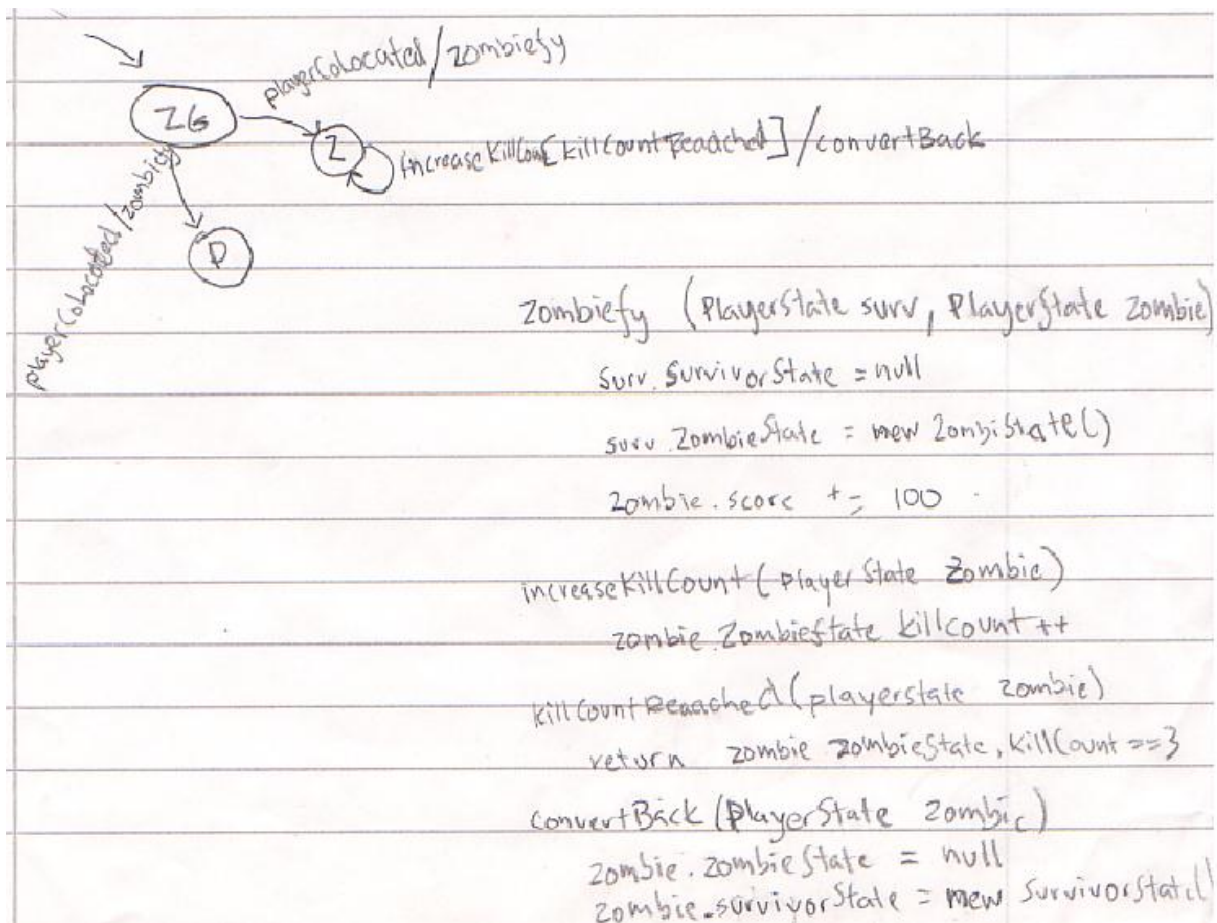 playerCoLocated/zombiefy
ZG
Z
increaseKillCoun[killCountReadched]/convertBack
playerCoLocated/zombiefy
D
Zombiefy (PlayerState surv, PlayerState Zombie)
Surv.SurvivorState = null
surv.ZombieState = new ZombiState()
Zombie.score += 100
increaseKillCount(playerState Zombie)
zombie.ZombieState killcount++
killCountReaached(playerstate zombie)
return zombie.zombieState.killCount==3
ConvertBack(PlayerState zombie)
zombie.zombieState = null
zombie.survivorState = new SurvivorState()